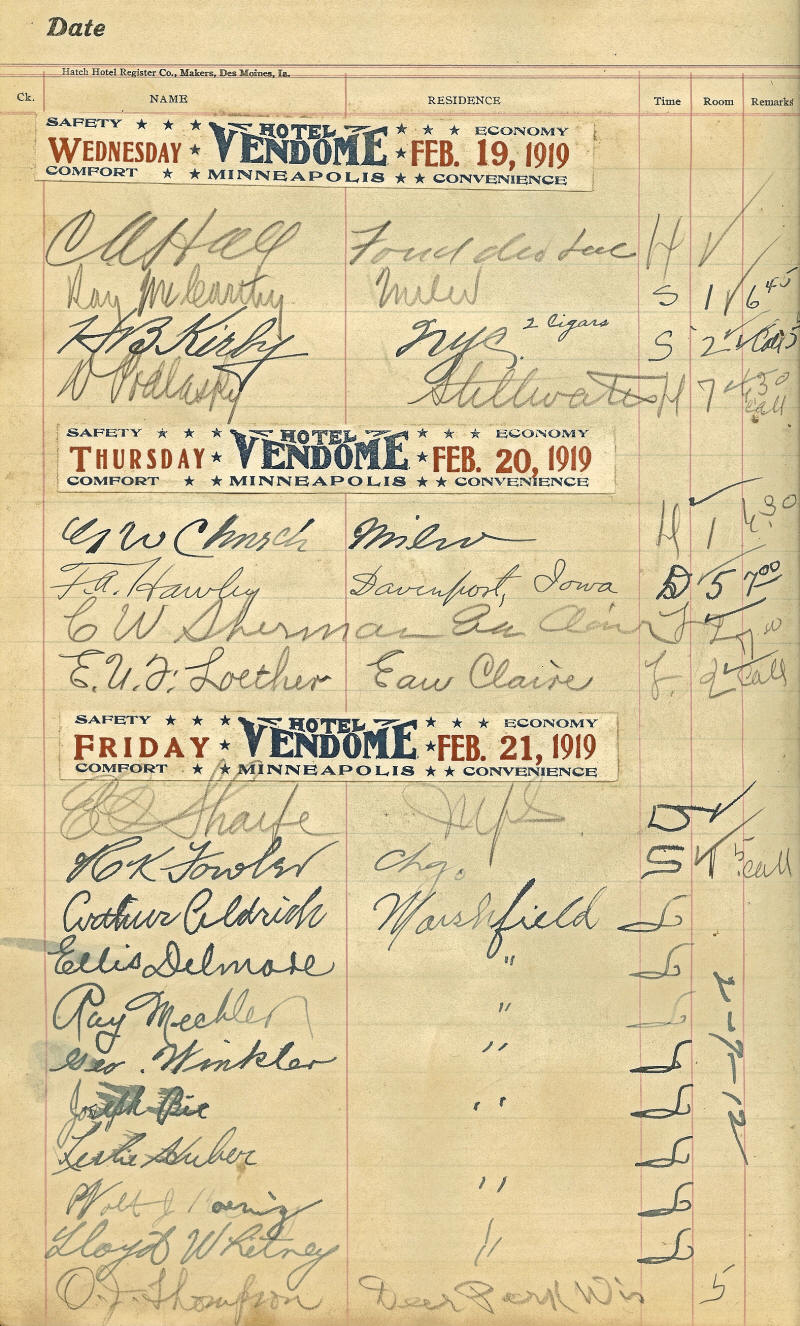 Date
Hatch Hotel Register Co., Makers, Des Moines, Ia.
Ck. NAME RESIDENCE Time Room Remarks
SAFETY HOTEL ECONOMY
WEDNESDAY VENDOME FEB. 19, 1919
COMFORT MINNEAPOLIS CONVENIENCE
C A Hall Fond du Lac H
Ray McCarthy Milw S 1 6 45
H B Kirby N.Y.C. 2 Cigars S 2 Call 5
W Podlasky Stillwater H 7 4.30 call
SAFETY HOTEL ECONOMY
THURSDAY VENDOME FEB. 20, 1919
COMFORT MINNEAPOLIS CONVENIENCE
G W Church Milw H 1 4.30
F.A. Hawley Davenport, Iowa D 5 7 00
C W Sherman Eau Claire 2
E.U.F. Loether Eau Claire 2 call
SAFETY HOTEL ECONOMY
FRIDAY VENDOME FEB. 21, 1919
COMFORT MINNEAPOLIS CONVENIENCE
Sharpe Mpls D
H K Fowler Chg. S 1 5 call
Arthur Aldrich Marshfield L
Ellis Delmore " L
Ray Mechler " L
Geo. Winkler " L 2-7-12
Joseph " L
Leslie Huber L
Walt J " L
Lloyd Whitney " L
O.J. Thompson Deer Park Wis 5